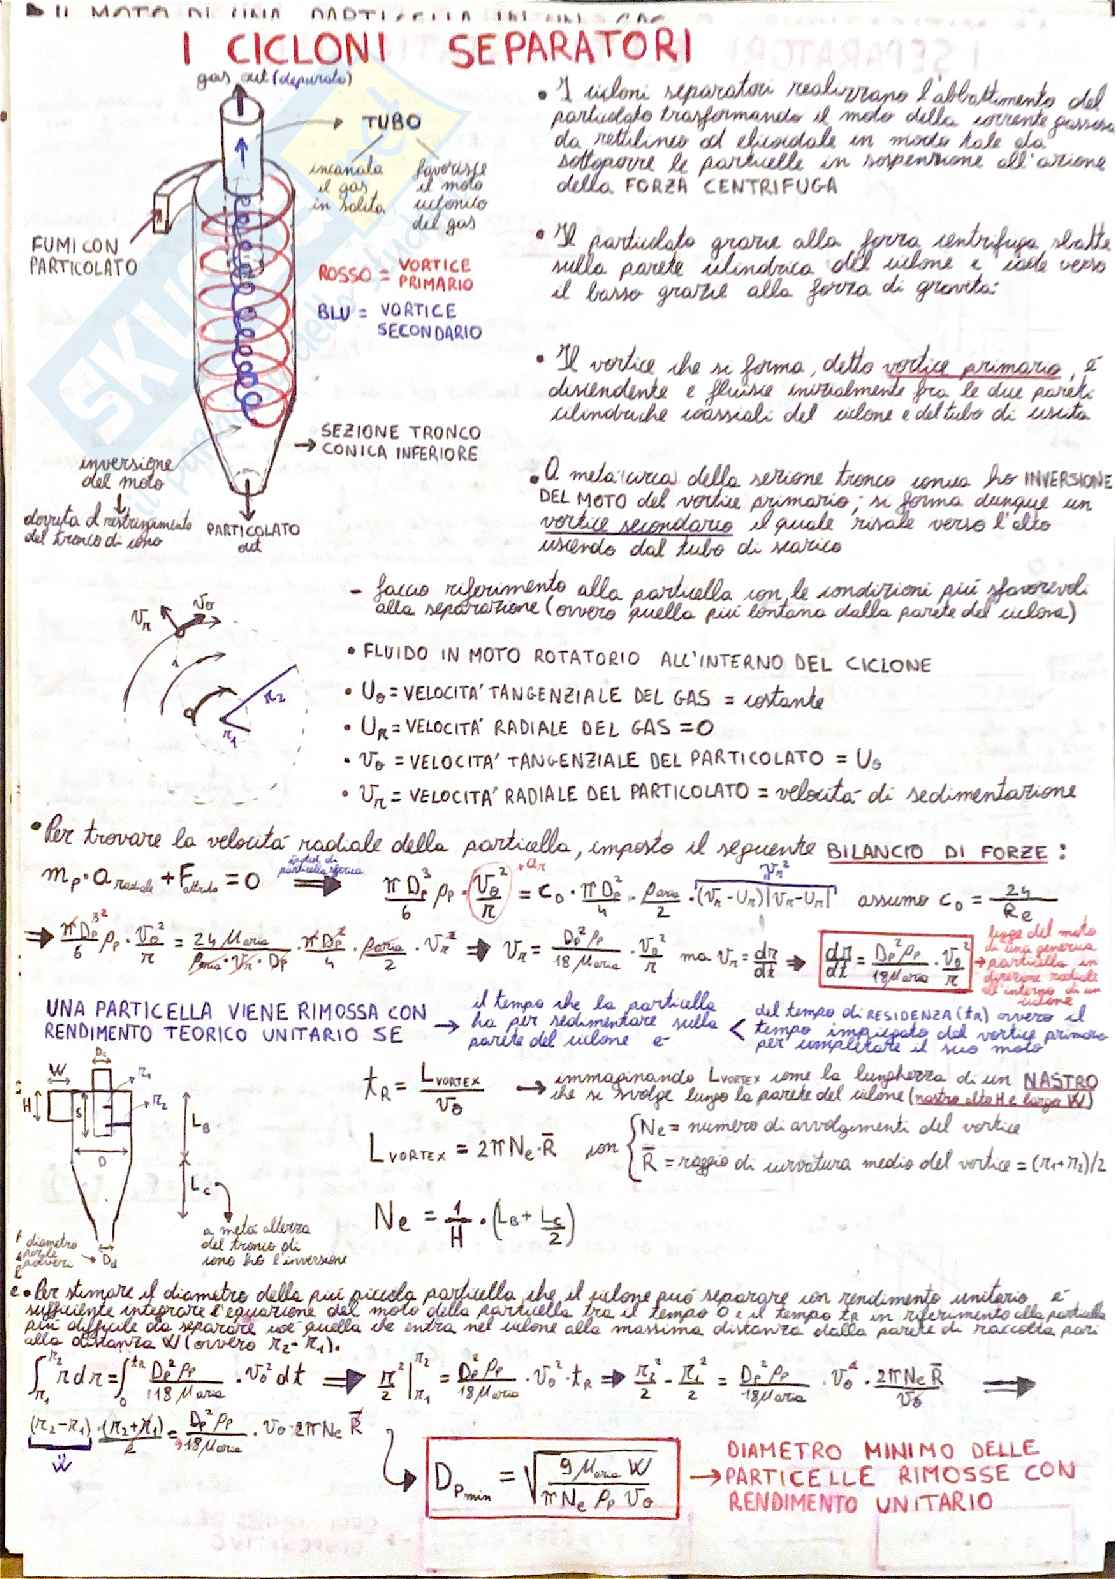 IL MOTO DI UNA PARTICELLA IN UN GAS
I CICLONI SEPARATORI
gas out (depurato)
TUBO
incanala il gas in salita
favorisce il moto ciclonico del gas
FUMI CON PARTICOLATO
ROSSO = VORTICE PRIMARIO
BLU = VORTICE SECONDARIO
SEZIONE TRONCO CONICA INFERIORE
inversione del moto
dovuta al restringimento del tronco di cono
PARTICOLATO out
SKUOLA
• I cicloni separatori realizzano l'abbattimento del
particolato trasformando il moto della corrente gassosa
da rettilineo ad elicoidale in modo tale da
sottoporre le particelle in sospensione all'azione
della FORZA CENTRIFUGA
• Il particolato grazie alla forza centrifuga sbatte
sulla parete cilindrica del ciclone e cade verso
il basso grazie alla forza di gravità:
• Il vortice che si forma, detto vortice primario, è
discendente e fluisce inizialmente fra le due pareti
cilindriche coassiali del ciclone e del tubo di uscita
• A metà (circa) della sezione tronco conica ho INVERSIONE
DEL MOTO del vortice primario; si forma dunque un
vortice secondario il quale risale verso l'alto
uscendo dal tubo di scarico
- faccio riferimento alla particella con le condizioni più sfavorevoli
alla separazione (ovvero quella più lontana dalla parete del ciclone)
vr vθ
r2
r1
• FLUIDO IN MOTO ROTATORIO ALL'INTERNO DEL CICLONE
• Uθ = VELOCITA' TANGENZIALE DEL GAS = costante
• UR = VELOCITA' RADIALE DEL GAS = 0
• vθ = VELOCITA' TANGENZIALE DEL PARTICOLATO = Uθ
• vr = VELOCITA' RADIALE DEL PARTICOLATO = velocità di sedimentazione
• Per trovare la velocità radiale della particella, imposto il seguente BILANCIO DI FORZE:
mp · a radiale + F attrito = 0 ⇒ πDp³/6 ρp · vθ²/r = cD · πDp²/4 · ρaria/2 · (vr - Ur)|vr - Ur| assumo cD = 24/Re
ar
vr²
⇒ πDp³/6 ρp · vθ²/r = 24 μaria/(ρaria · vr · Dp) · πDp²/4 · ρaria/2 · vr² ⇒ vr = Dp² ρp/18 μaria · vθ²/r ma vr = dr/dt ⇒ dr/dt = Dp² ρp/18 μaria · vθ²/r
legge del moto di una generica particella in direzione radiale all'interno di un ciclone
UNA PARTICELLA VIENE RIMOSSA CON
RENDIMENTO TEORICO UNITARIO SE
→ il tempo che la particella ha per sedimentare sulla parete del ciclone è
< del tempo di RESIDENZA (tR) ovvero il tempo impiegato dal vortice primario per completare il suo moto
W
Dc
H
S
r1
r2
D
LB
Lc
Dd
a metà altezza del tronco di cono ho l'inversione
diametro per le polveri
tR = LVORTEX/vθ → immaginando LVORTEX come la lunghezza di un NASTRO
che si svolge lungo la parete del ciclone (nastro alto H e largo W)
LVORTEX = 2πNe · R̄ con { Ne = numero di avvolgimenti del vortice
R̄ = raggio di curvatura medio del vortice = (r1+r2)/2
Ne = 1/H · (LB + Lc/2)
• Per stimare il diametro della più piccola particella che il ciclone può separare con rendimento unitario è
sufficiente integrare l'equazione del moto della particella tra il tempo 0 e il tempo tR in riferimento alla particella
più difficile da separare cioè quella che entra nel ciclone alla massima distanza dalla parete di raccolta pari
alla distanza W (ovvero r2 - r1).
∫r1 r2 r dr = ∫0 tR Dp² ρp/18 μaria · vθ² dt ⇒ r²/2 |r1 r2 = Dp² ρp/18 μaria · vθ² · tR ⇒ r2²/2 - r1²/2 = Dp² ρp/18 μaria · vθ² · 2πNe R̄/vθ ⇒
(r2 - r1) · (r2 + r1)/2 = Dp² ρp/18 μaria · vθ · 2πNe R̄
W
Dpmin = √(9 μaria W/πNe ρp vθ) → DIAMETRO MINIMO DELLE
PARTICELLE RIMOSSE CON
RENDIMENTO UNITARIO